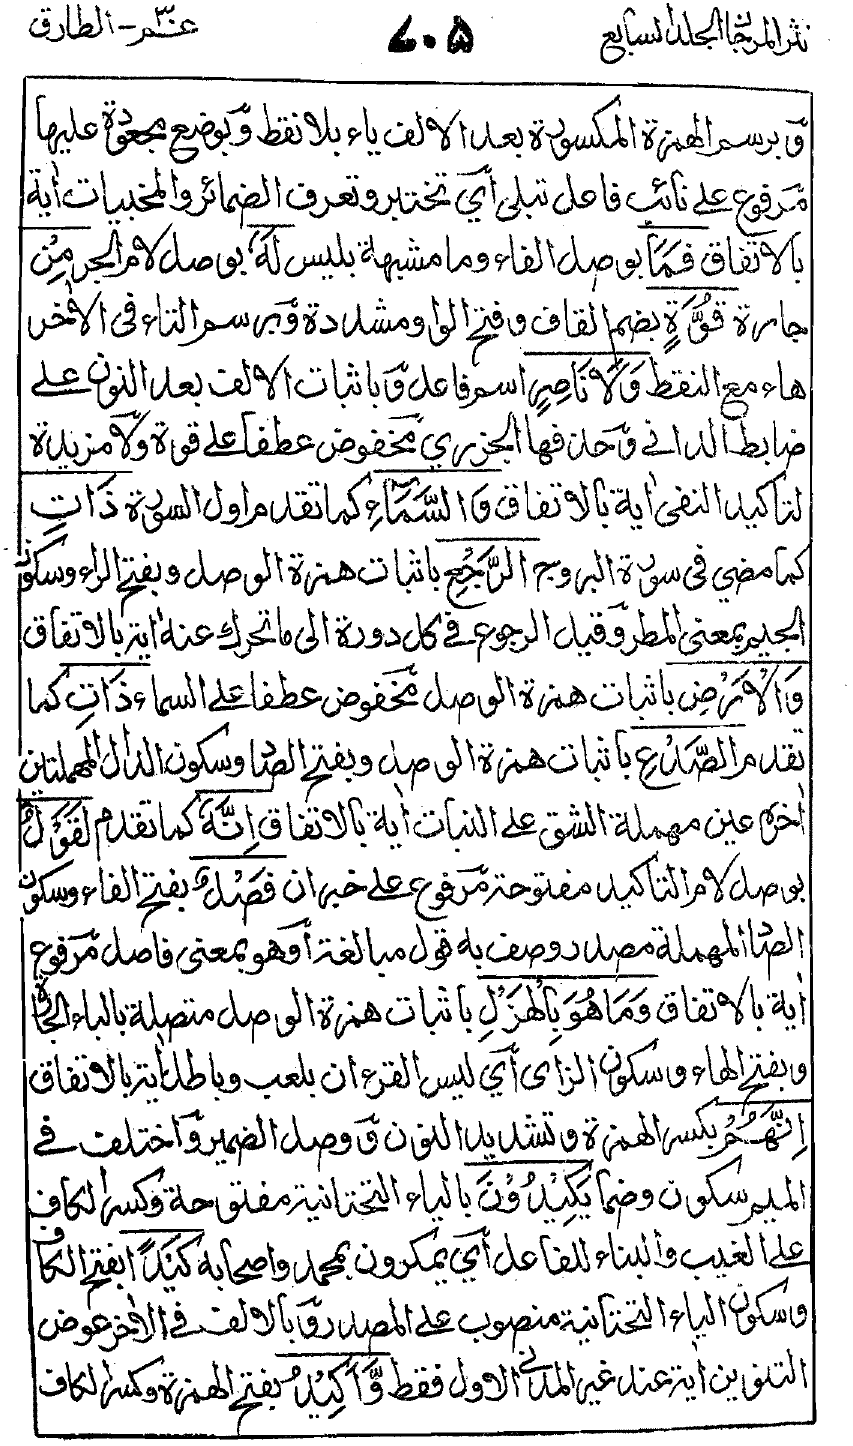 نثر المرجان المجلد السابع
۷۰۵
عمّ - الطارق
وبرسم الهمزة المكسورة بعد الالف ياء بلا نقط وبوضع مجعودة عليها
مرفوع على نائب فاعل تبلى أي تختبر وتعرف الضمائر والمخبيات اية
بالاتفاق فَمَا بوصل الفاء وما مشبهة بليس لَهُ بوصل لام الجر مِن
جارة قُوَّةٍ بضم القاف وفتح الواو مشددة وبرسم التاء في الاخر
هاء مع النقط وَّلَا نَاصِرٍ اسم فاعل وباثبات الالف بعد النون على
ضابط الداني وحذفها الجزري مخفوض عطفا على قوة ولا مزيدة
لتاكيد النفى اية بالاتفاق وَالسَّمَآءِ كما تقدم اول السورة ذَاتِ
كما مضي في سورة البروج الرَّجْعِ باثبات همزة الوصل وبفتح الراء وسكون
الجيم بمعنى المطر وقيل الرجوع في كل دورة الى ما تحرك عنه اية بالاتفاق
وَالْاَرْضِ باثبات همزة الوصل مخفوض عطفا على السماء ذَاتِ كما
تقدم الصَّدْعِ باثبات همزة الوصل وبفتح الصاد وسكون الدال المهملتين
اخره عين مهملة الشق على النبات اية بالاتفاق اِنَّهٗ كما تقدم لَقَوْلٌ
بوصل لام التاكيد مفتوحة مرفوع على خبر ان فَصْلٌ بفتح الفاء وسكون
الصاد المهملة مصدر وصف به قول مبالغة أو هو بمعنى فاصل مرفوع
اية بالاتفاق وَمَا هُوَ بِالْهَزْلِ باثبات همزة الوصل متصلة بالباء الجارة
وبفتح الهاء وسكون الزاى أي ليس القرءان بلعب وباطل اية بالاتفاق
اِنَّهُمْ بكسر الهمزة وتشديد النون ووصل الضمير واختلف في
الميم سكون وضما يَكِيْدُوْنَ بالياء التحتانية مفتوحة وكسر الكاف
على الغيب والبناء للفاعل أي يمكرون بمحمد واصحابه كَيْدًا بفتح الكاف
وسكون الياء التحتانية منصوب على المصدر وبالالف في الاخر عوض
التنوين اية عند غير المدني الاول فقط وَّاَكِيْدُ بفتح الهمزة وكسر الكاف